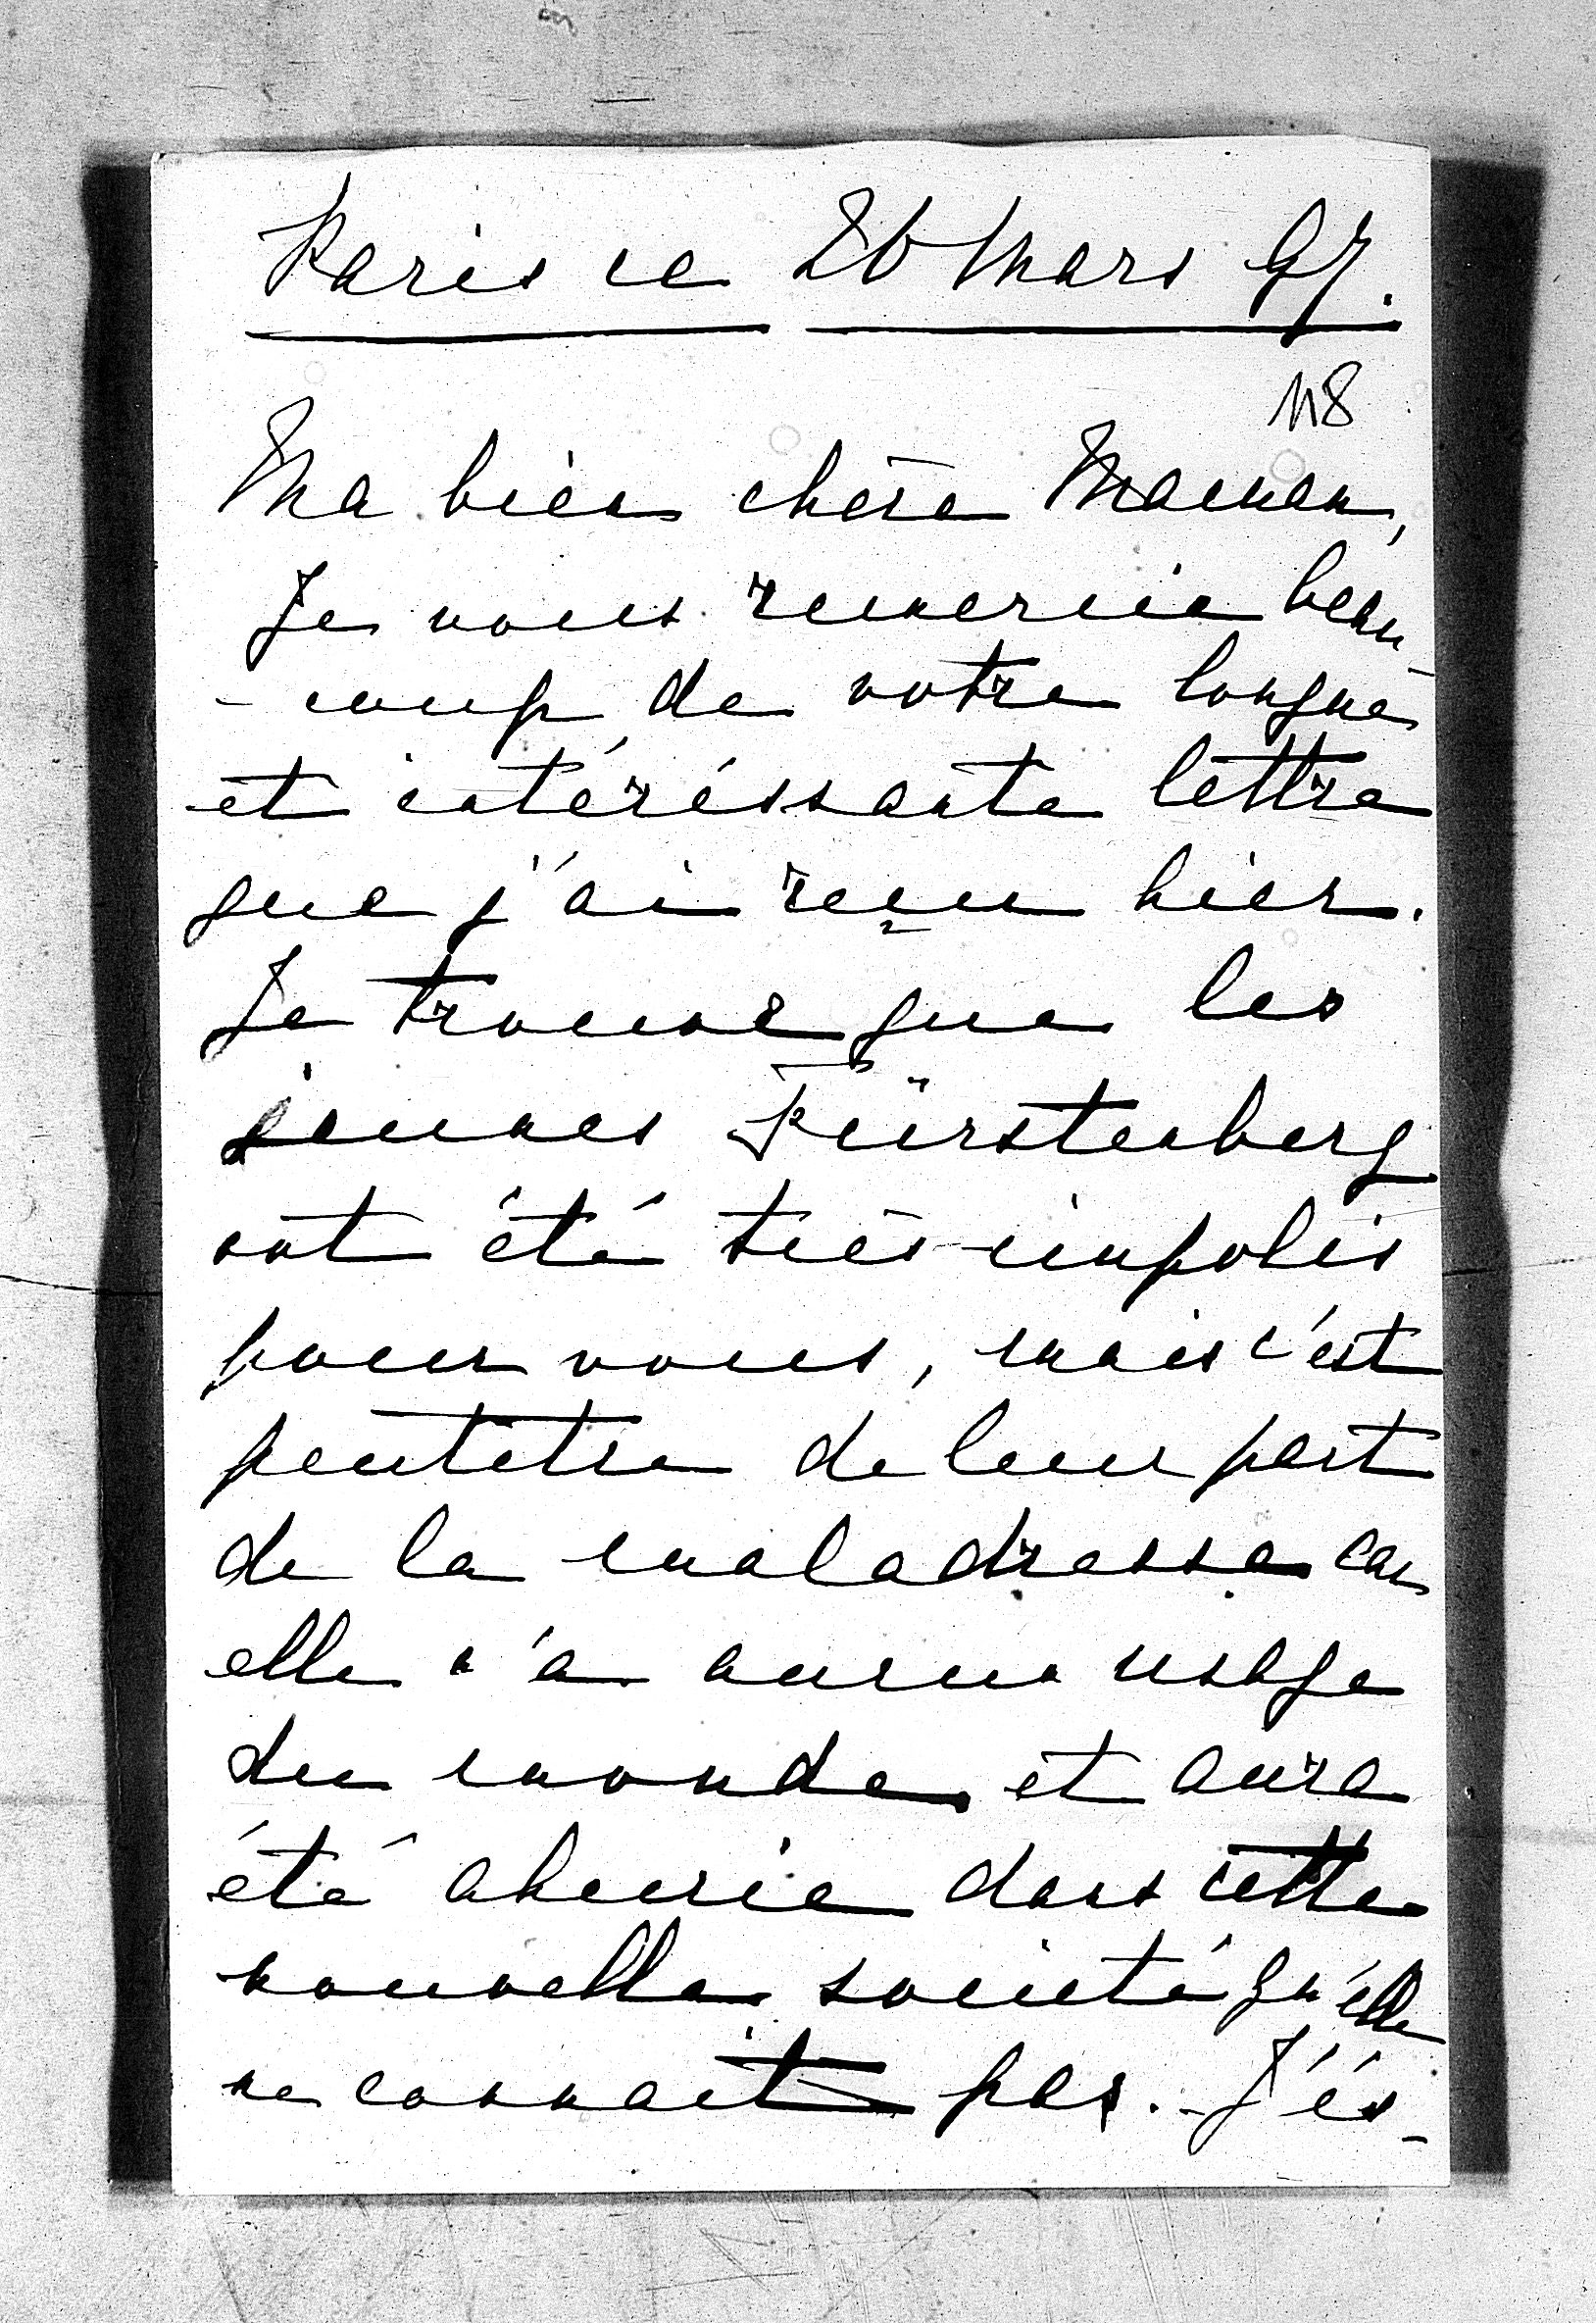 Paris ce 26 Mars 97.
118
Ma bien chère Maman,
Je vous remercie beau-
-coup de votre longue
et intéréssante lettre
que j'ai reçu hier.
Je trouve que les
jeunes Fürstenberg
ont été très impolis
pour vous, mais c'est
peutêtre de leur part
de la maladresse car
elle n'a aucun usage
du monde et aura
été ahurie dans cette
nouvelle société qu'elle
ne connait pas. J'és-